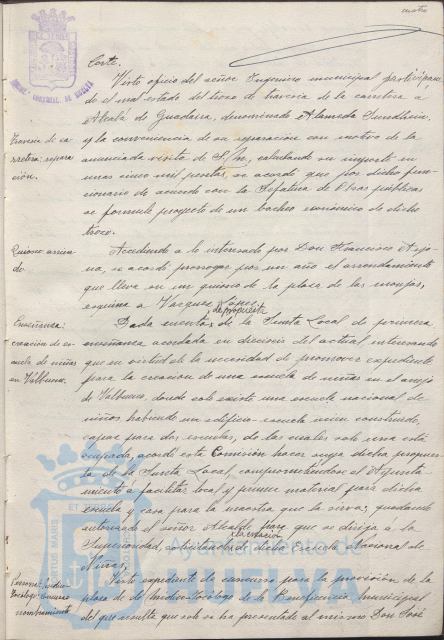 Corte.
Visto oficio del señor Ingeniero municipal participan-
do el mal estado del trozo de travesia de la carretera a
Alcalá de Guadaira, denominado Alameda Sundheim
Travesia de ca-
rretera: repara-
ción.
y la conveniencia de su reparación con motivo de la
anunciada visita de S/m, calculando su importe en
unas cinco mil pesetas, se acordó que por dicho fun-
cionario de acuerdo con la Jefatura de Obras públicas
se formule proyecto de un bacheo económico de dicho
trozo.
Quiosco: arrien-
do.
Accediendo a lo interesado por Don Francisco
na, se acordó prorrogar por un año el arrendamiento
que lleva en un quiosco de la plaza de las monjas,
esquina a Vazquez López.
Enseñanza:
creación de es-
cuela de niñas
en Valbueno.
Dada cuenta de la propuesta de la Junta Local de primera
enseñanza acordada en dieciseis del actual interesando
que en virtud de la necesidad de promover expediente
para la creación de una escuela de niñas en el anejo
de Valbueno, donde solo existe una escuela nacional de
niños habiendo un edificio-escuela recien construido,
capaz para dos escuelas, de las cuales solo una está
ocupada, acordó esta Comisión hacer suya dicha propues-
ta de la Junta Local, comprometiéndose el Ayunta-
miento a facilitar local y primer material para dicha
escuela y casa para la maestra que la sirva; quedando
autorizado el señor Alcalde para que se dirija á la
Superioridad, solicitando la creación de dicha Escuela Nacional de
Niñas.
nombramiento
Visto expediente de concurso para la provisión de la
plaza de Médico-Tocólogo de la Beneficencia municipal
del que resulta que solo se ha presentado al mismo Don José
Ayuntamiento de
HUELVA